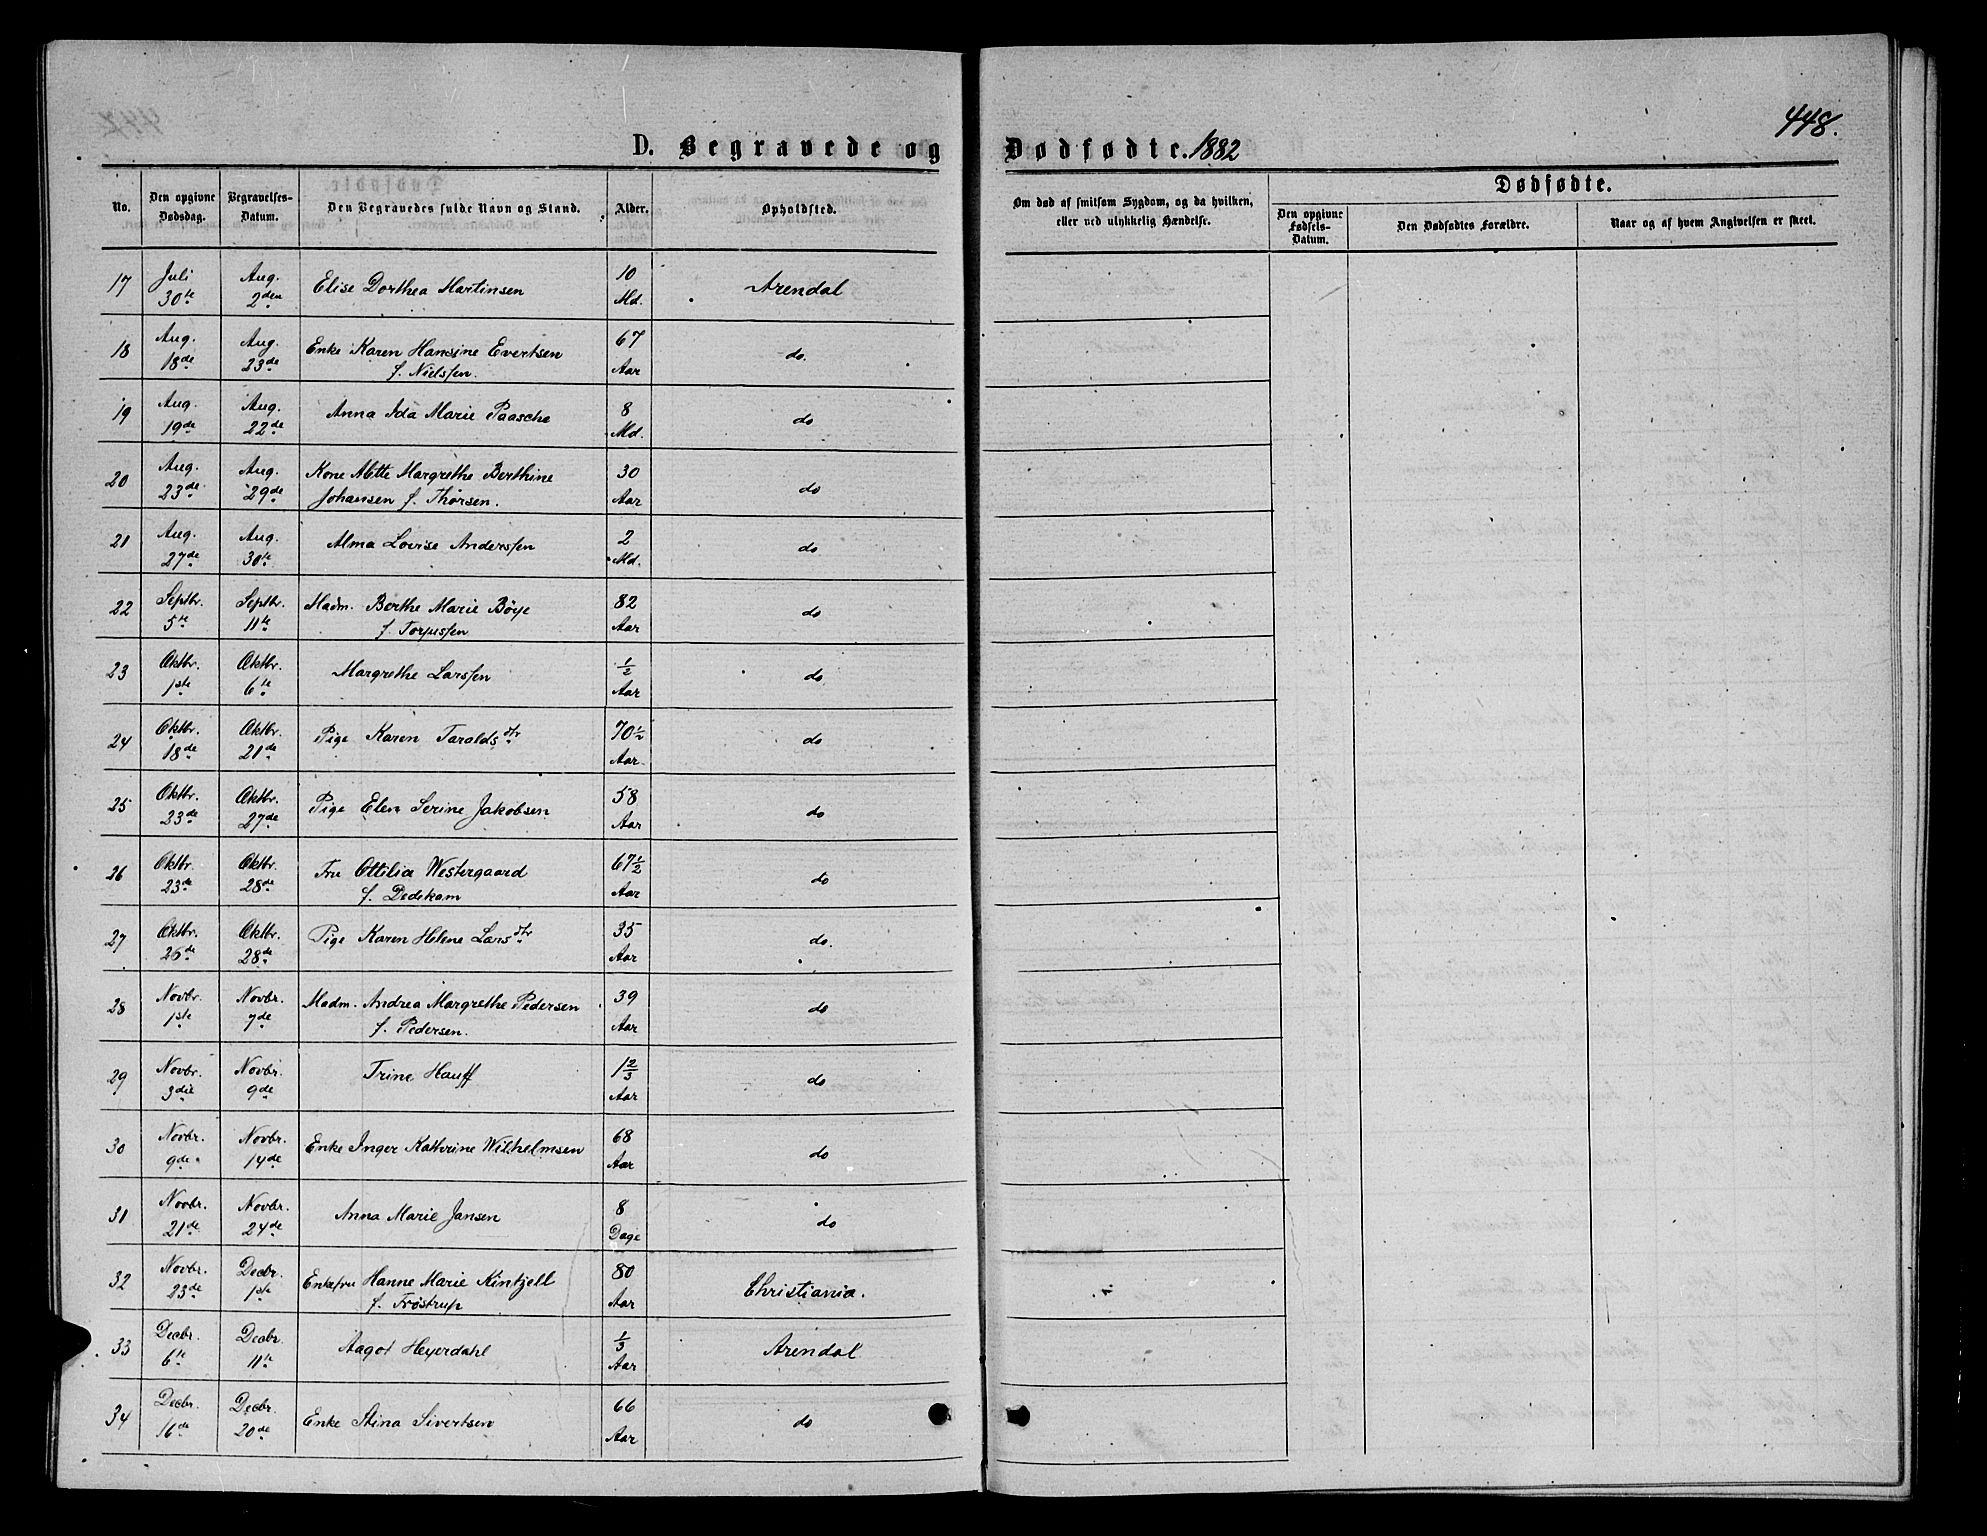 448.
D. Begravede og Dødfødte. 1882
No.
Den opgivne Dødsdag.
Begravelses-Datum.
Den Begravedes fulde Navn og Stand.
Alder.
Opholdsted.
Om død af smitsom Sygdom, og da hvilken, eller ved ulykkelig Hændelse.
Dødfødte.
Den opgivne Fødsels-Datum.
Den Dødfødtes Forældre.
Naar og af hvem Angivelsen er skeet.
17 Juli 30te Aug. 2den Elise Dorthea Martinsen 10 Md. Arendal
18 Aug. 18de Aug. 23de Enke Karen Hansine Evertsen f. Nielssen. 67 Aar do.
19 Aug. 19de Aug. 22de Anna Ida Marie Paasche 8 Md. do
20 Aug. 23de Aug. 29de Kone Mette Margrethe Berthine Johansen f. Thørsen. 30 Aar do
21 Aug. 27de Aug. 30te Alma Lovise Anderssen 2 Md. do
22 Septbr. 5te Septbr. 11te Madm. Berthe Marie Böye f. Torjussen 82 Aar do
23 Oktbr. 1ste Oktbr. 6te Margrethe Larssen ½ Aar do
24 Oktbr. 18de Oktbr. 21de Pige Karen Taraldsdtr 70½ Aar. do
25 Oktbr. 23de Oktbr. 27de Pige Elen Serine Jakobsen 58 Aar do
26 Oktbr. 23de Oktbr. 28de Fru Ottilia Westergaard f. Dedekam 67½ Aar do
27 Oktbr. 26de Oktbr. 28de Pige Karen Helene Larsdtr 35 Aar do.
28 Novbr. 1ste Novbr. 7de Madm. Andrea Margrethe Pedersen f. Pedersen. 39 Aar do
29 Novbr. 3die Novbr. 9de Trine Hauff 1⅔ Aar do
30 Novbr. 9de Novbr. 14de Enke Inger Kathrine Wilhelmsen 68 Aar do
31 Novbr. 21de Novbr. 24de Anna Marie Jansen 8 Dage do
32 Novbr. 23de Decbr. 1ste Enkefru Hanne Marie Kintzell f. Frøstrup 80 Aar Christiania.
33 Decbr. 6te Decbr. 11te Aagot Heyerdahl ⅓ Aar Arendal
34 Decbr. 16de Decbr. 20de Enke Stina Sivertsen 66 Aar do